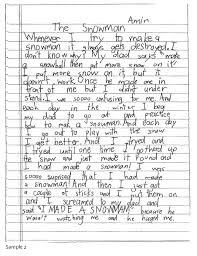 Amin
The Snowman
Whenever I try to make a
snowman it always gets destroyed. I
don't know why? My dad says "made
a snowball then put more snow on it" I
put more snow on it, but it
doesn't work. Once he made one in
front of me but I didn't under
stand. It was soooo confusing for me. And
each day in the winter I bug
my dad to go out and practice
how to make a snowman. And each day
I go out to play with the snow
I get better. And I tryed and
I tryed until one time I pushed up
the snow and just made it round and
I had made a snowman! I was
sooo suprised that I had made
a snowman! And then I just got
a couple of sticks and I put them on
and I screamed to my dad and
said "I MADE A SNOWMAN" because he
wasn't watching me and he huged me.
Sample 2